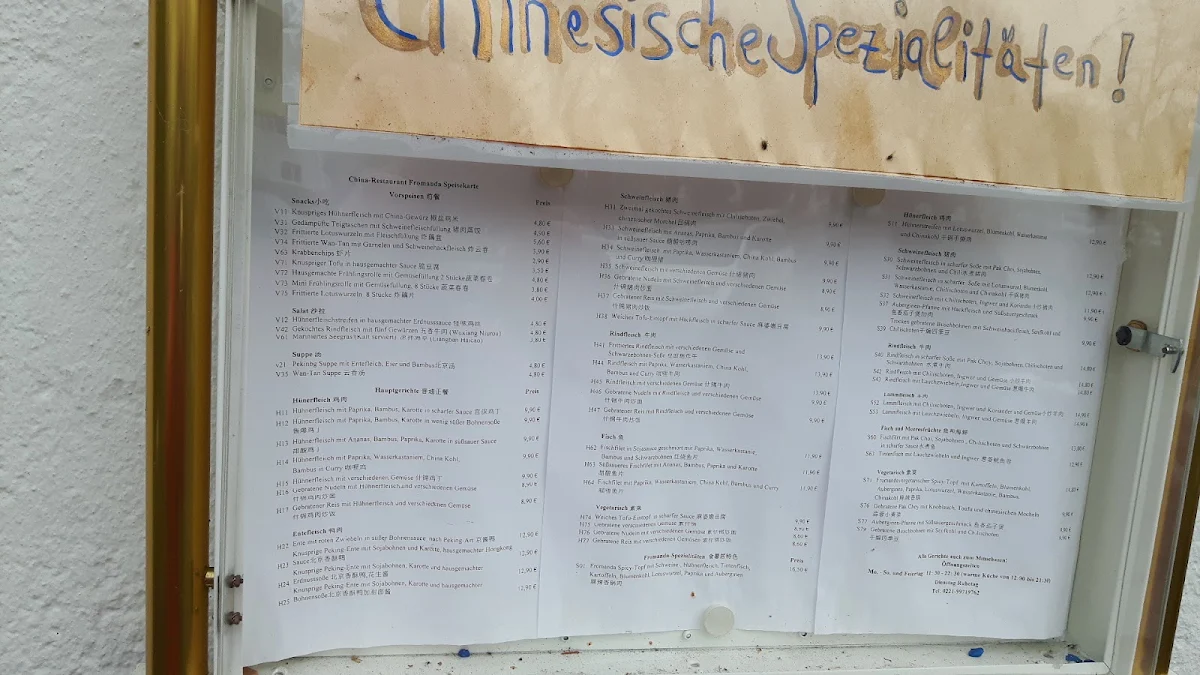 Chinesische Spezialitäten!
China-Restaurant Fromanda Speisekarte
Vorspeisen 前餐
Preis
Snacks小吃
V11 Knuspriges Hühnerfleisch mit China-Gewürz 4,80 €
V31 Gedämpfte Teigtaschen mit Schweinefleischfüllung 4,90 €
V32 Frittierte Lotuswurzeln mit Fleischfüllung 5,60 €
V34 Frittierte Wan-Tan mit Garnelen und Schweinehackfleisch 炸云吞
V63 Krabbenchips 虾片 2,90 €
V71 Knuspriger Tofu in hausgemachter Sauce
V72 Hausgemachte Frühlingsrolle mit Gemüsefüllung 2 Stücke蔬菜春卷
V73 Mini Frühlingsrolle mit Gemüsefüllung, 8 Stücke 蔬菜春卷 3,80 €
V75 Frittierte Lotuswurzeln, 8 Stücke 炸藕片 4,00 €
Salat 沙拉
V12 Hühnerfleischstreifen in hausgemachter Erdnusssauce 怪味鸡丝 4,80 €
V42 Gekochtes Rindfleisch mit fünf Gewürzen 五香牛肉 (Wuxiang Niurou) 4,80 €
V61 Mariniertes Seegras(Kalt serviert) (Liangban Haicao) 4,80 €
Suppe 汤
v21 Pekining Suppe mit Entefleisch, Eier und Bambus北京汤 4,80 €
V35 Wan-Tan Suppe 云吞汤 4,80 €
Hauptgerichte 普通正餐 Preis
Hünerfleisch 鸡肉
H11 Hühnerfleisch mit Paprika, Bambus, Karotte in scharfer Sauce 宫保鸡丁 9,90 €
H12 Hühnerfleisch mit Paprika, Bambus, Karotte in wenig süßer Bohnensoße 9,90 €
酱爆鸡丁
H13 Hühnerfleisch mit Ananas, Bambus, Paprika, Karotte in süßsauer Sauce 9,90 €
甜酸鸡丁
H14 Hühnerfleisch mit Paprika, Wasserkastanien, China Kohl, 9,90 €
Bambus in Curry 咖喱鸡
H15 Hühnerfleisch mit verschiedenen Gemüse 什锦鸡丁 9,90 €
H16 Gebratene Nudeln mit Hühnerfleisch und verschiedenen Gemüse 8,90 €
什锦鸡肉炒面
H17 Gebratener Reis mit Hühnerfleisch und verschiedenen Gemüse 8,90 €
什锦鸡肉炒饭
Entefleisch 鸭肉
H22 Ente mit roten Zwiebeln in süßer Bohnensauce nach Peking Art 京酱鸭 12,90 €
Knusprige Peking-Ente mit Sojabohnen und Karotte, hausgemachter Hongkong
H23 Sauce北京香酥鸭 12,90 €
Knusprige Peking-Ente mit Sojabohnen, Karotte und hausgemachter
H24 Erdnußsoße 北京香酥鸭,花生酱 12,90 €
Knusprige Peking-Ente mit Sojabohnen, Karotte und hausgemachter
H25 Bohnensoße北京香酥鸭 12,90 €
Schweinefleisch 猪肉
H31 Zweimal gekochtes Schweinefleisch mit Chilischoten, Zwiebel,
chinesischer Muschel 回锅肉 9,90 €
mit Ananas, Paprika, Bambus und Karotte
in süßsauer Sauce 9,90 €
H34 Schweinefleisch mit Paprika, Wasserkastanien, China Kohl, Bambus
und Curry 9,90 €
H35 Schweinefleisch mit verschiedenen Gemüse 什锦猪肉 9,90 €
H36 Gebratene Nudeln mit Schweinefleisch und verschiedenen Gemüse 8,90 €
什锦猪肉炒面
H37 Gebratener Reis mit Schweinefleisch und verschiedenen Gemüse 8,90 €
什锦猪肉炒饭
H38 Weiches Tofu-Eintopf mit Hackfleisch in scharfer Sauce 麻婆豆腐 9,90 €
Rindfleisch 牛肉
H41 Frittiertes Rindfleisch mit verschiedenen Gemüse und
Schwarzebohnen Soße 13,90 €
H44 Rindfleisch mit Paprika, Wasserkastanien, China Kohl,
Bambus und Curry 咖喱牛肉 13,90 €
H45 Rindfleisch mit verschiedenen Gemüse 什锦牛肉 13,90 €
H46 Gebratene Nudeln mit Rindfleisch und verschiedenen Gemüse 9,90 €
什锦牛肉炒面
H47 Gebratener Reis mit Rindfleisch und verschiedenen Gemüse 9,90 €
什锦牛肉炒饭
Fisch 鱼
H62 Fischfilet in Sojasauce geschmort mit Paprika, Wasserkastanie,
Bambus und Schwarzbohnen 红烧鱼片 11,90 €
H63 Süßsaures Fischfilet mit Ananas, Bambus, Paprika und Karotte 11,90 €
甜酸鱼片
H64 Fischfilet mit Paprika, Wasserkastanien, China Kohl, Bambus und Curry 11,90 €
咖喱鱼片
Vegetarisch 素菜
H74 Weiches Tofu-Eintopf in scharfer Sauce 麻婆豆腐 9,90 €
H75 Gebratene verschiedenen Gemüse 素什锦 8,90 €
H76 Gebratene Nudeln mit verschiedenen Gemüse 素什锦炒面 8,60 €
H77 Gebratener Reis mit verschiedenen Gemüse 素什锦炒饭 8,60 €
Fromanda Spezialitäten Preis
S01 Fromanda Spicy-Topf mit Schweine-, Hühnerfleisch, Tintenfisch, 16,50 €
Kartoffeln, Blumenkohl, Lotuswurzel, Paprika und Aubergines
麻辣香锅肉
Hünerfleisch 鸡肉
Hühnerstreifen mit Lotuswurzel, Blumenkohl, Kaiserkastanie
und Chinakohl 干锅手撕鸡 12,90 €
Schweinefleisch 猪肉
S30 Schweinefleisch in scharfer Soße mit Pak Choi, Sojabohnen,
Schwarzbohnen und Chili 水煮猪肉 12,90 €
S31 Schweinefleisch in scharfer Soße mit Lotuswurzel, Blumenkohl
12,90 €
Schweinefleisch mit Chilischoten, Ingwer und Koriander 11,90 €
S37 Aubergine-Pfanne mit Hackfleisch und Süßsauergeschmack 9,90 €
鱼香茄子
Trocken gebratene Buschbohnen mit Schweinehackfleisch, Senfkohl und
S39 Chilischoten干煸四季豆 9,90 €
Rindfleisch 牛肉
S40 Rindfleisch in scharfer Soße mit Pak Choi, Sojabohnen, Chilischoten und
Schwarzbohnen 水煮牛肉 14,80 €
S42 Rindfleisch mit Chilischoten, Ingwer und Gemüse 14,80 €
S43 Rindfleisch mit Lauchzwiebeln, Ingwer und Gemüse 葱爆牛肉 14,80 €
Lammfleisch 羊肉
S52 Lammfleisch mit Chilischoten, Ingwer und Koriander und Gemüse 14,90 €
S53 Lammfleisch mit Lauchzwiebeln, Ingwer und Gemüse 14,90 €
Fisch und Meeresfrüchte 鱼和海鲜
S60 Fischfilet mit Pak Choi, Sojabohnen, Chilischoten und Schwarzbohnen
in scharfer Sauce 水煮鱼 13,80 €
S61 Tintenfisch mit Lauchzwiebeln und Ingwer 葱姜鱿鱼卷 12,90 €
Vegetarisch 素菜
S71 Fromandavegetarischer Spicy-Topf mit Kartoffeln, Blumenkohl, 13,80 €
Aubergines, Paprika, Lotuswurzel, Wasserkastanie, Bambus,
Chinakohl 麻辣香锅
S76 Gebratene Pak Choi mit Knoblauch, Toufu und chinesischen Morcheln 9,90 €
S77 Aubergines-Pfanne mit Süßsauergeschmack 鱼香茄子煲 9,90 €
S79 Gebratene Buschbohne mit Senfkohl und Chilischoten 9,90 €
干煸四季豆
Alle Gerichte auch zum Mitnehmen!
Öffnungszeiten
Mo. - So. und Feiertag 11:30 - 22:30 (warme Küche von 12:00 bis 21:30)
Dienstag Ruhetag
Tel. 0221-99319762